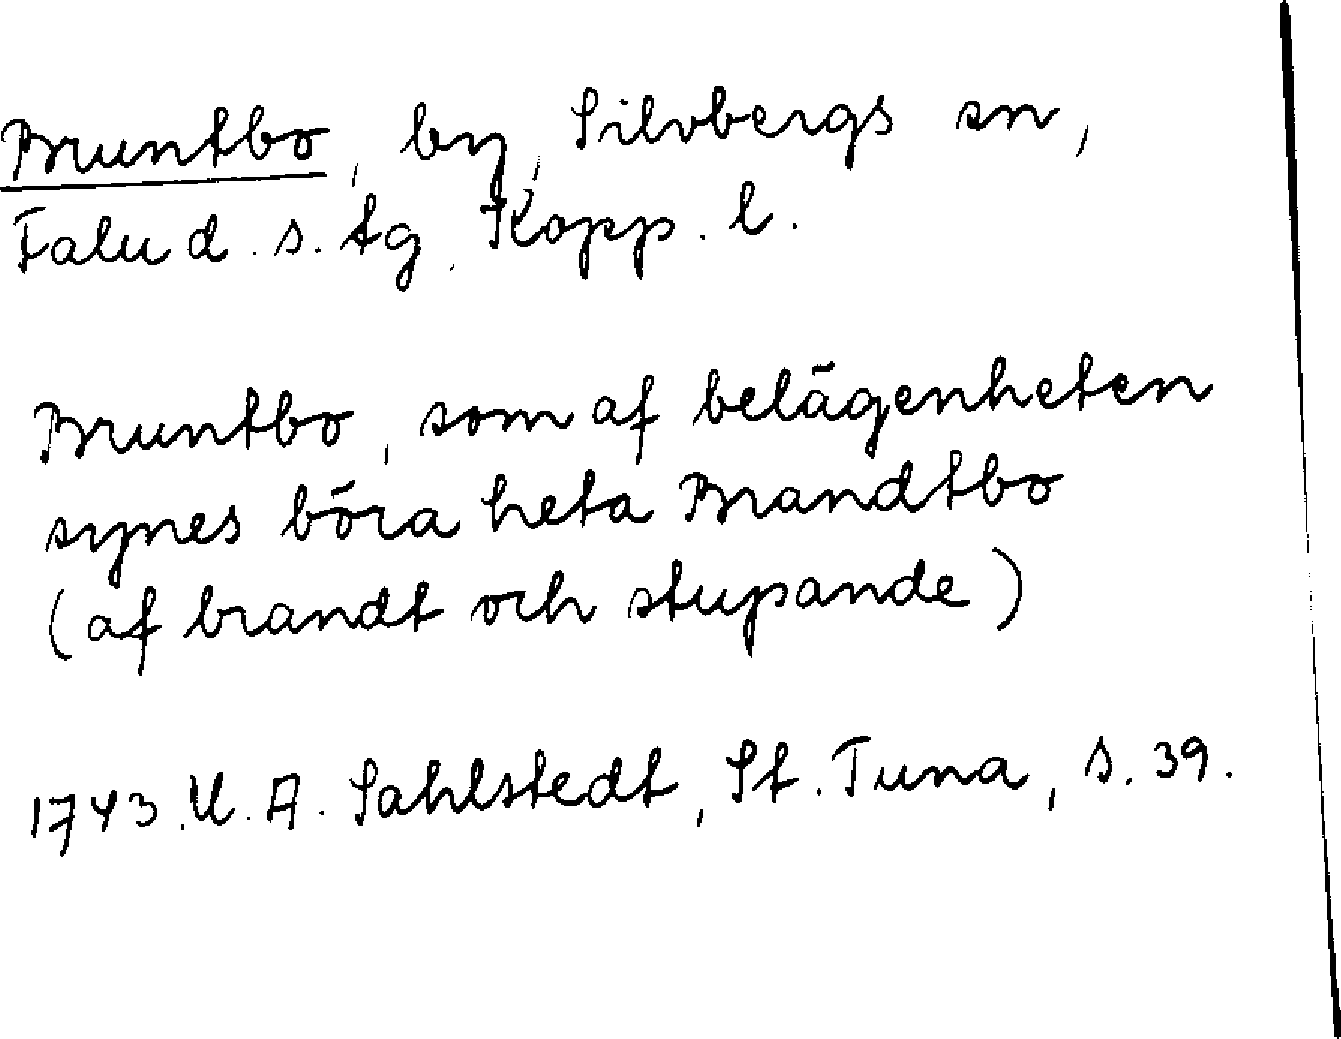 Bruntbo, by, Silvbergs sn,
Falu d. s. tg. Kopp. l.
Bruntbo, som af belägenheten
synes böra heta Brandtbo
(af brandt och stupande)
1743. U. A. Sahlstedt, St. Tuna, s. 39.